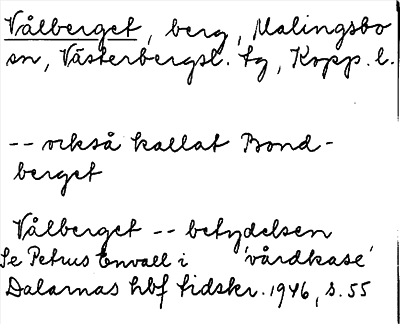 Vålberget, berg, Malingsbo
sn, Västerbergsl. tg, Kopp. l.
-- också kallat Bond-
berget
Vålberget -- betydelsen
Se Petrus Envall i 'vårdkase'
Dalarnas hbf tidskr. 1946, s. 55